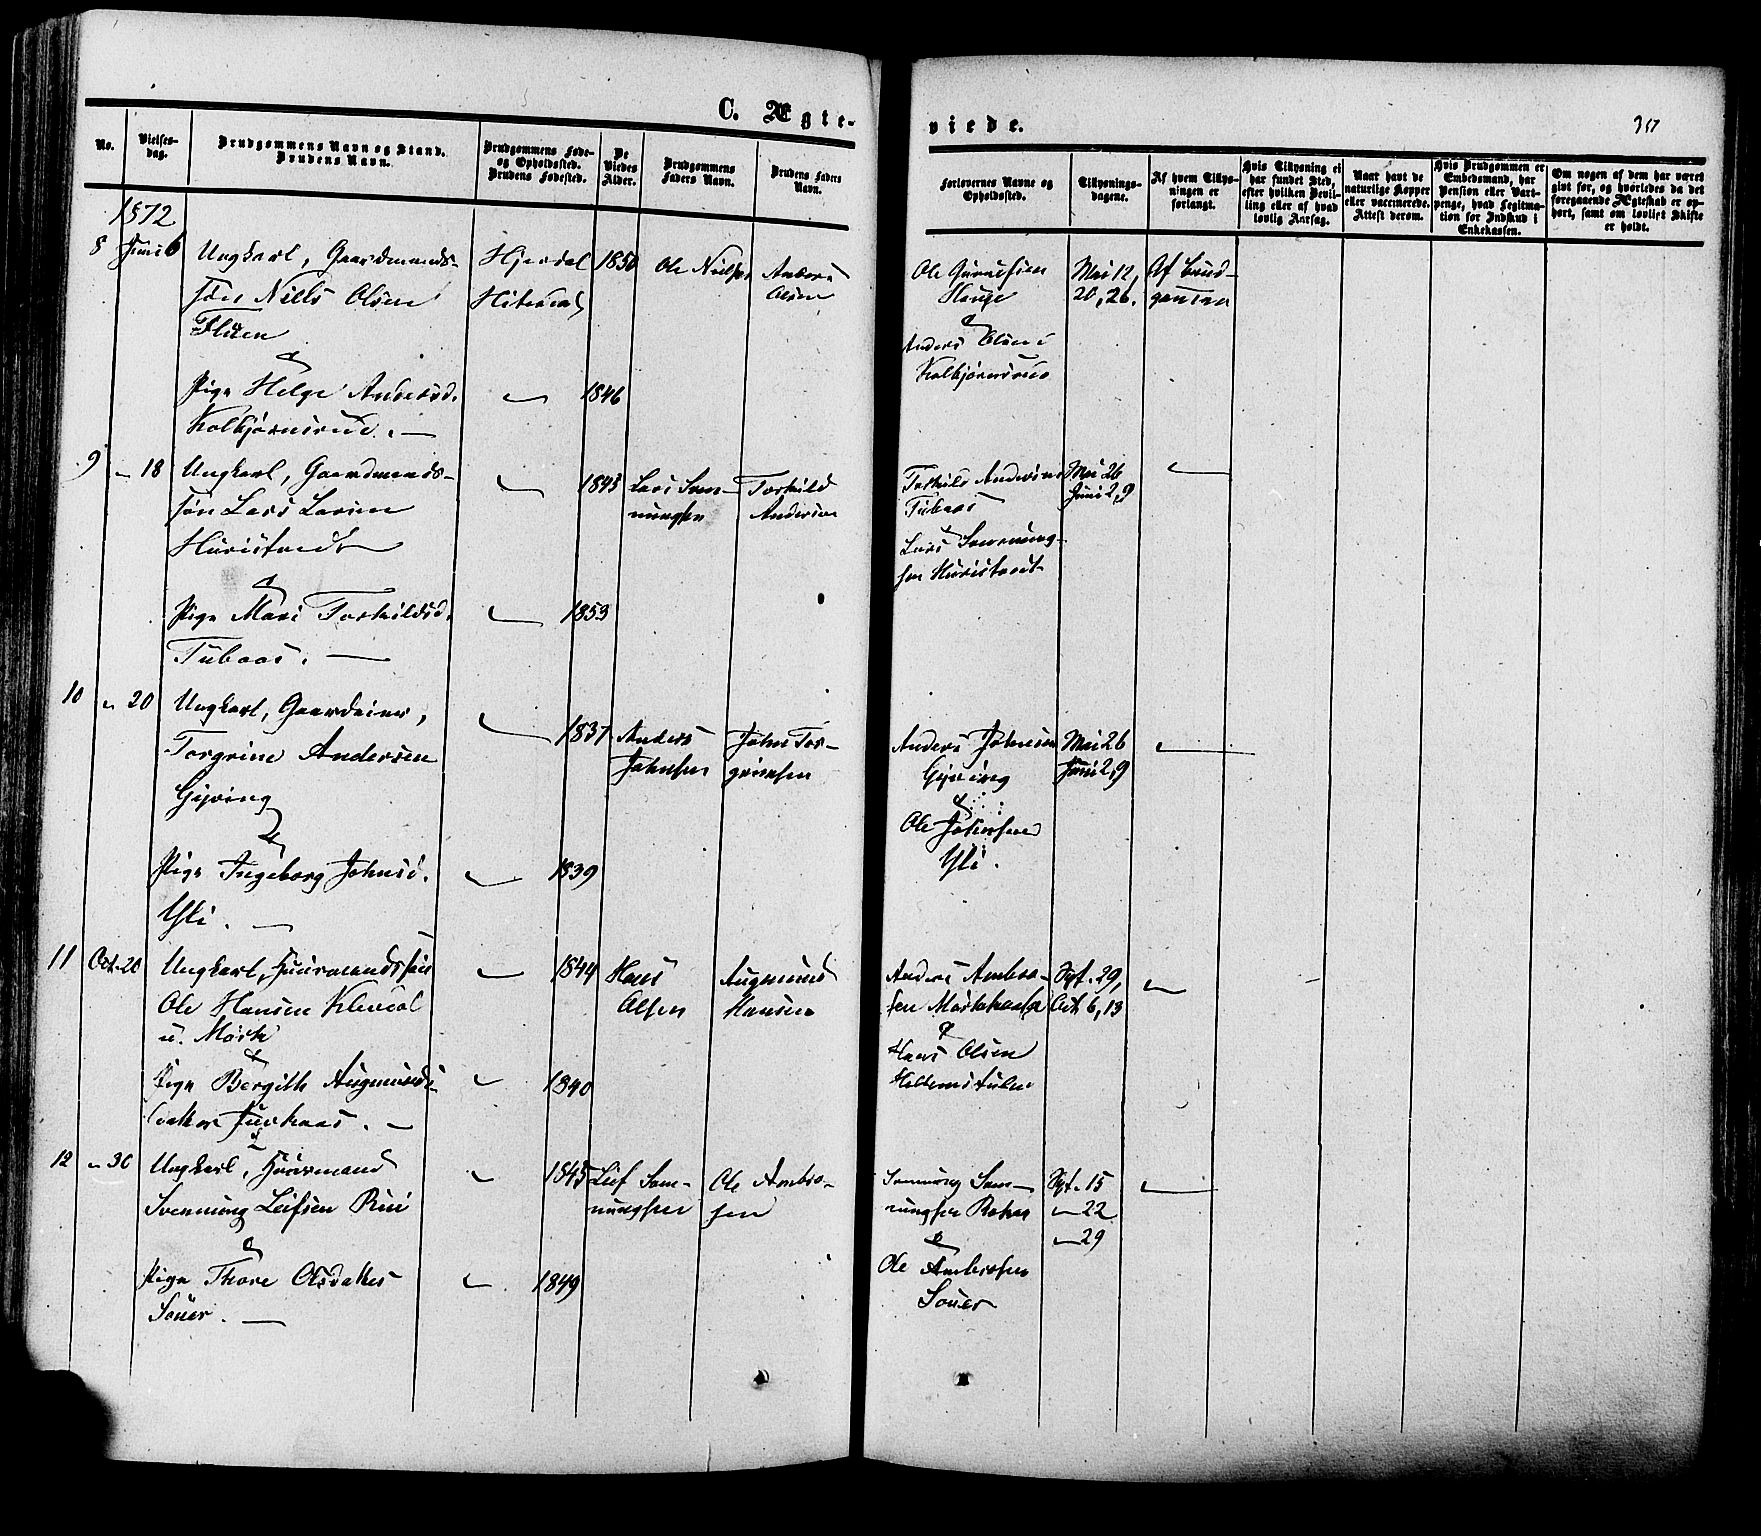 C. Ægte-
viede.
357
No.
Vielses-
dag.
Brudgommens Navn og Stand.
Brudens Navn.
Brudgommens Føde-
og Opholdssted.
Brudens Fødested.
De
Viedes
Alder.
Brudgommens
Faders Navn.
Brudens Faders
Navn.
Forlovernes Navne og
Opholdssted.
Tillysnings-
dagene.
Af hvem Tillys-
ningen er
forlangt.
Hvis Tillysning ei
har fundet Sted,
efter hvilken Bevil-
ling eller af hvad
lovlig Aarsag.
Naar havt de
naturlige Kopper
eller vaccinerede.
Attest derom.
Hvis Brudgommen er
Embedsmand, har
Pension eller Vart-
penge, hvad Legitima-
tion for Indskud i
Enkekassen.
Om nogen af dem har været
gift før, og hvorledes da det
foregaaende Ægteskab er op-
hørt, samt om lovligt Skifte
er holdt.
1872
8 Juni 6 Ungkarl, Gaardmands-
søn Niels Olsen
&
Pige Helge Andersd.
Kolbjørnsrud. —
Hjerdal
Hiterdal
1850
1846
Ole Nielsen
Anders
Olsen
Ole
Hauge
&
Anders Olsen
Kolbjørnsrud
Mai 12,
20, 26.
Af Brud-
gommen
9 " 18 Ungkarl, Gaardmands-
søn Lars Larsen
&
Pige Mari Torkildsd.
Tubaas. —
1843
1853
Torkild
Andersen
Torkild Andersen
Tubaas
Mai 26
Juni 2, 9
10 " 20 Ungkarl, Gaardeier,
Torgrim Andersen
Gjøving
&
Pige Ingeborg Johnsd.
Yli. —
1837
1839
Anders
Johnsen
John Tor-
grimsen
Anders Johnsen
Gjøving
&
Ole Johnsen
Yli.
Mai 26
Juni 2, 9
11 Oct. 20 Ungkarl, Huusmandssøn
Ole Hansen
&
Pige Bergith Augmunds-
datter
1844
1840
Hans
Olsen
Augmund
Hansen
Anders
&
Hans Olsen
Sept. 29,
Oct. 6, 13
12 " 30 Ungkarl, Huusmand
Svennung Leifsen Rui
&
Pige Thore Olsdatter
Sauer. —
1845
1849
Leif Sven-
nungsen
Ole Ambro-
sen
Svennung Sven-
nungsen
&
Ole Ambrosen
Sauer
Sept. 15
" 22
" 29